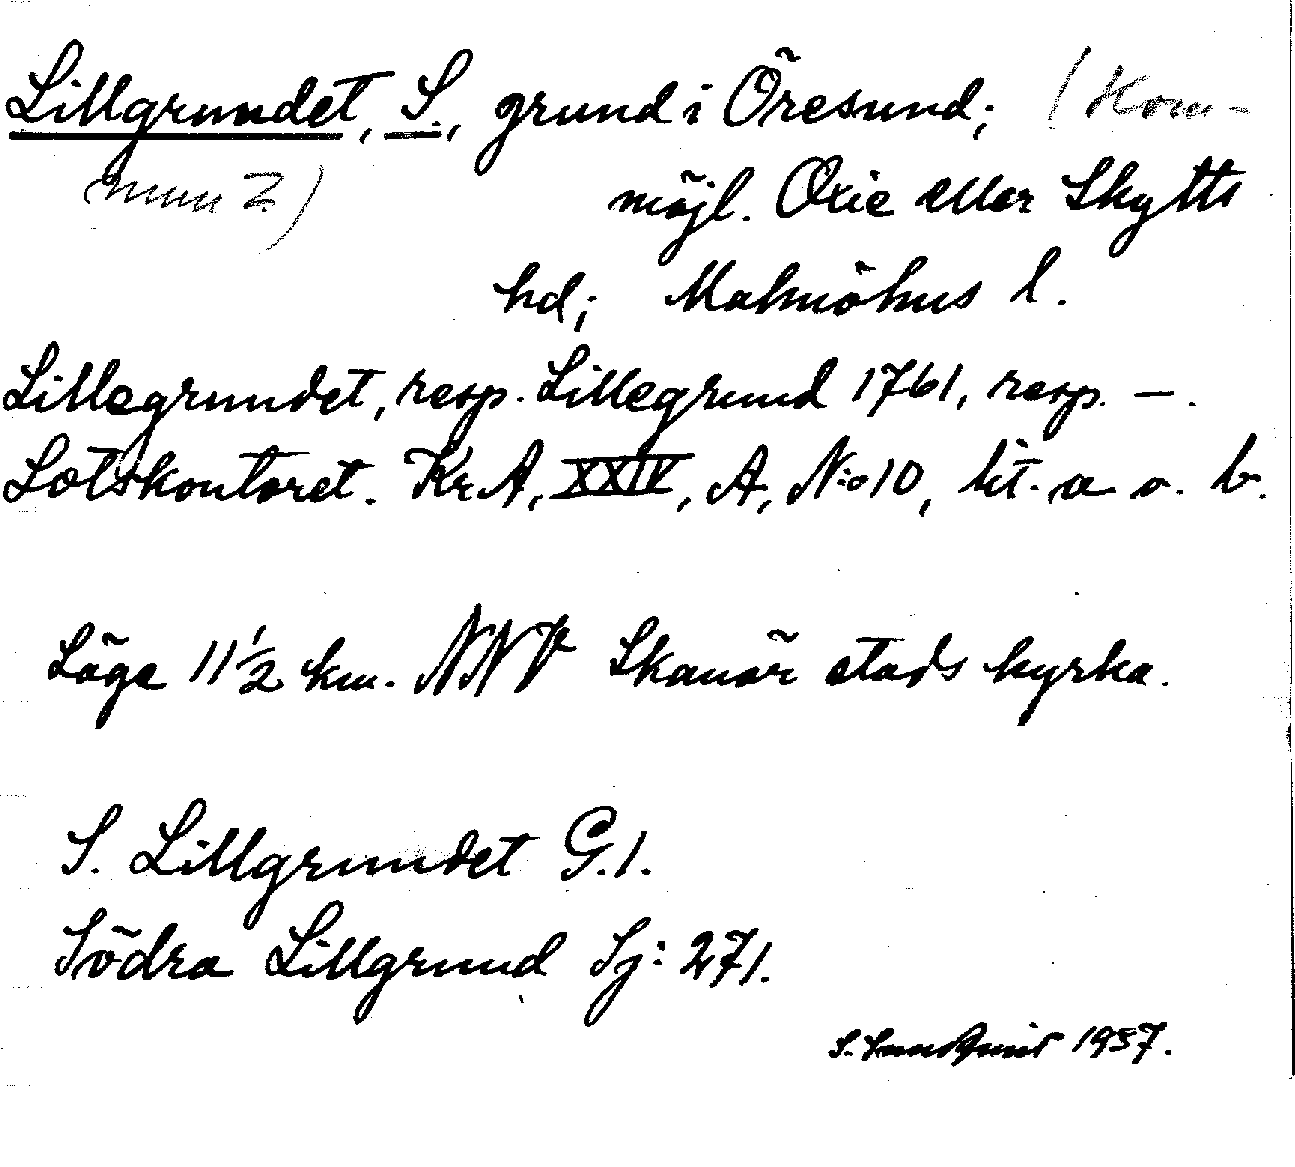 Lillgrundet, S., grund i Öresund; (Kom-
mun Z)
möjl. Oxie eller Skytts
hd; Malmöhus l.
Lillegrundet, resp. Lillegrund 1761, resp. — .
Lotskontoret. KrA, XXIV, A, N:o 10, lit. a o. b.
Läge 11 1/2 km. NNV Skanör stads kyrka.
S. Lillgrundet G. 1.
Södra Lillgrund Sj: 271.
S. 1957.